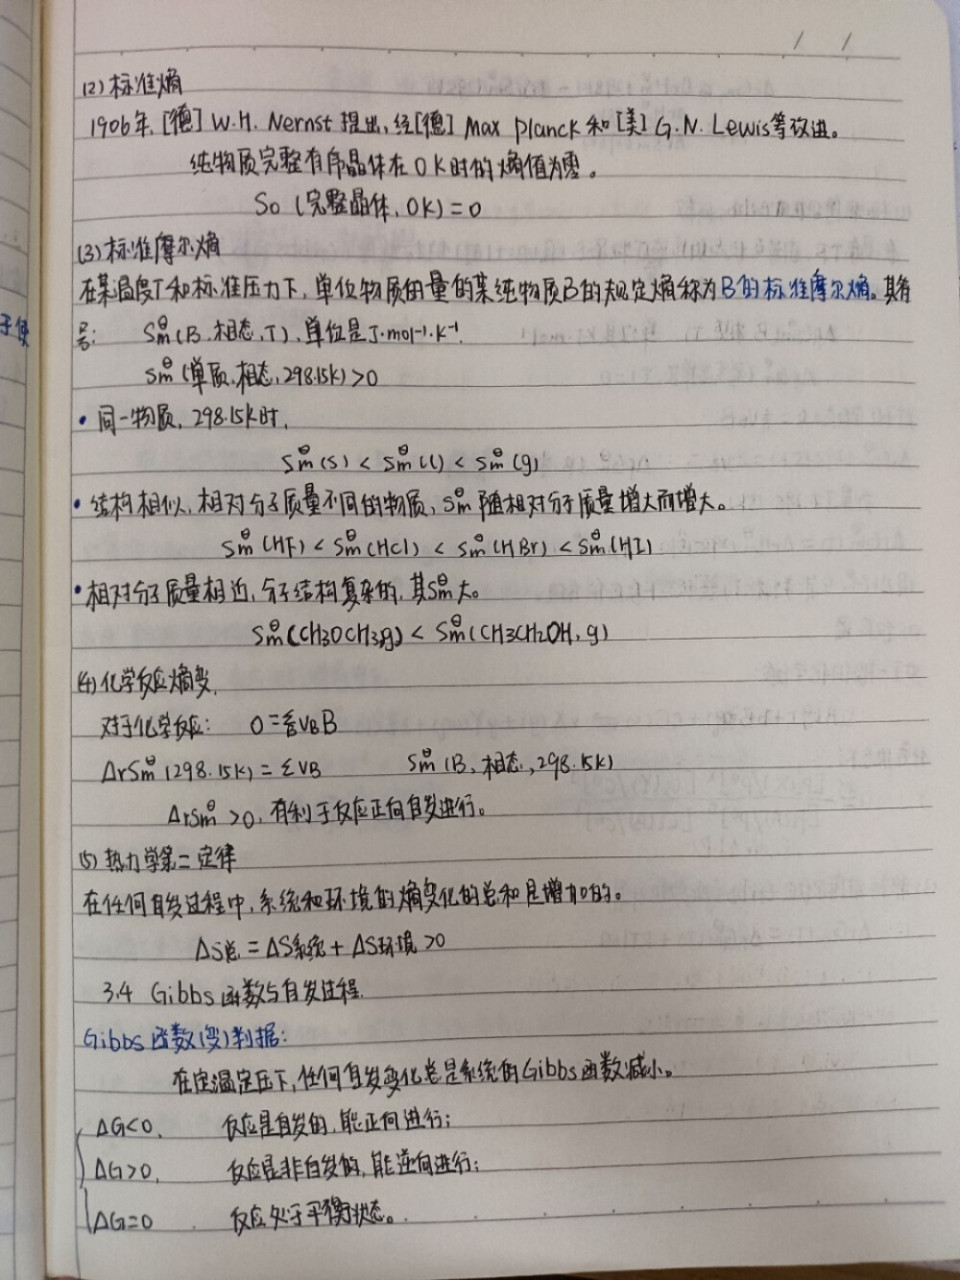 (2) 标准熵
1906年,[德] W.H. Nernst 提出,经[德] Max Planck 和 [美] G.N. Lewis等改进。
纯物质完整有序晶体在0K时的熵值为零。
So (完整晶体, OK) = 0
(3) 标准摩尔熵
在某温度T和标准压力下,单位物质的量的某纯物质B的规定熵称为B的标准摩尔熵。其符
号: Sm^θ (B, 相态, T), 单位是J·mol⁻¹·K⁻¹.
Sm^θ (单质, 相态, 298.15K) > 0
• 同一物质, 298.15K时,
Sm^θ (s) < Sm^θ (l) < Sm^θ (g)
• 结构相似, 相对分子质量不同的物质, Sm^θ 随相对分子质量增大而增大。
Sm^θ (HF) < Sm^θ (HCl) < Sm^θ (HBr) < Sm^θ (HI)
• 相对分子质量相近, 分子结构复杂的, 其Sm^θ大。
Sm^θ (CH3OCH3,g) < Sm^θ (CH3CH2OH, g)
(4) 化学反应熵变.
对于化学反应: 0 = ΣνB B
ΔrSm^θ (298.15K) = ΣνB Sm^θ (B, 相态, 298.15K)
ΔrSm^θ > 0, 有利于反应正向自发进行。
(5) 热力学第二定律
在任何自发过程中, 系统和环境的熵变化的总和是增加的。
ΔS总 = ΔS系统 + ΔS环境 > 0
3.4 Gibbs 函数与自发过程.
Gibbs 函数(变)判据:
在定温定压下, 任何自发变化总是系统的Gibbs函数减小。
ΔG<0, 反应是自发的, 能正向进行;
ΔG>0, 反应是非自发的, 能逆向进行;
ΔG=0 反应处于平衡状态。